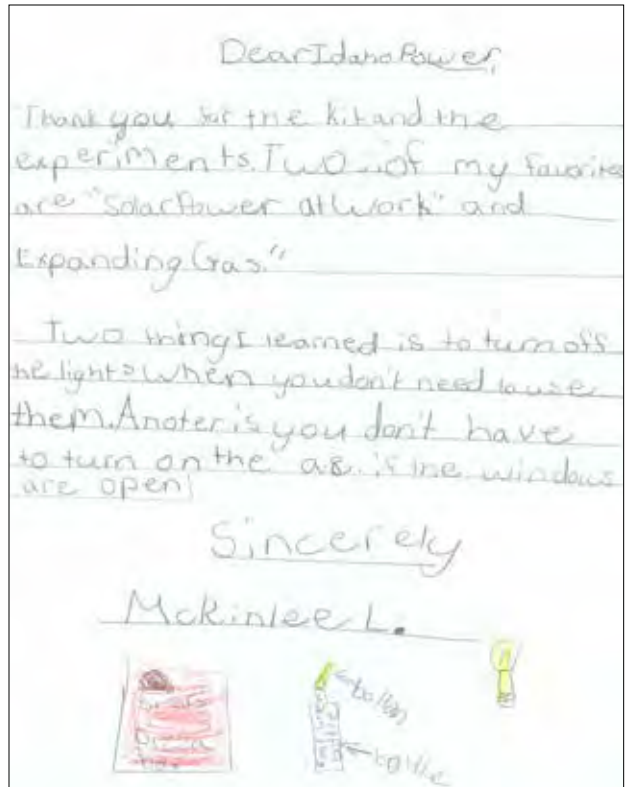 Dear Idaho Power,
Thank you for the kit and the
experiments. Two of my favorites
are "Solar Power at Work" and
Expanding Gas."
Two things I learned is to turn off
he lights when you don't need to use
them. Anoter is you don't have
to turn on the if the windows
are open!
Sincerely
Mckinlee L.
ballon
bottle